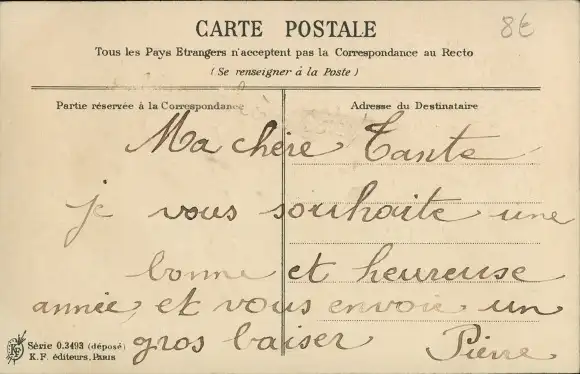 8€
CARTE POSTALE
Tous les Pays Etrangers n'acceptent pas la Correspondance au Recto
(Se renseigner à la Poste)
Partie réservée à la Correspondance
Adresse du Destinataire
Ma chère Tante
je vous souhaite une
bonne et heureuse
année, et vous envoie un
gros baiser Pierre
Série 0.3493 (déposé)
K.F. éditeurs, Paris